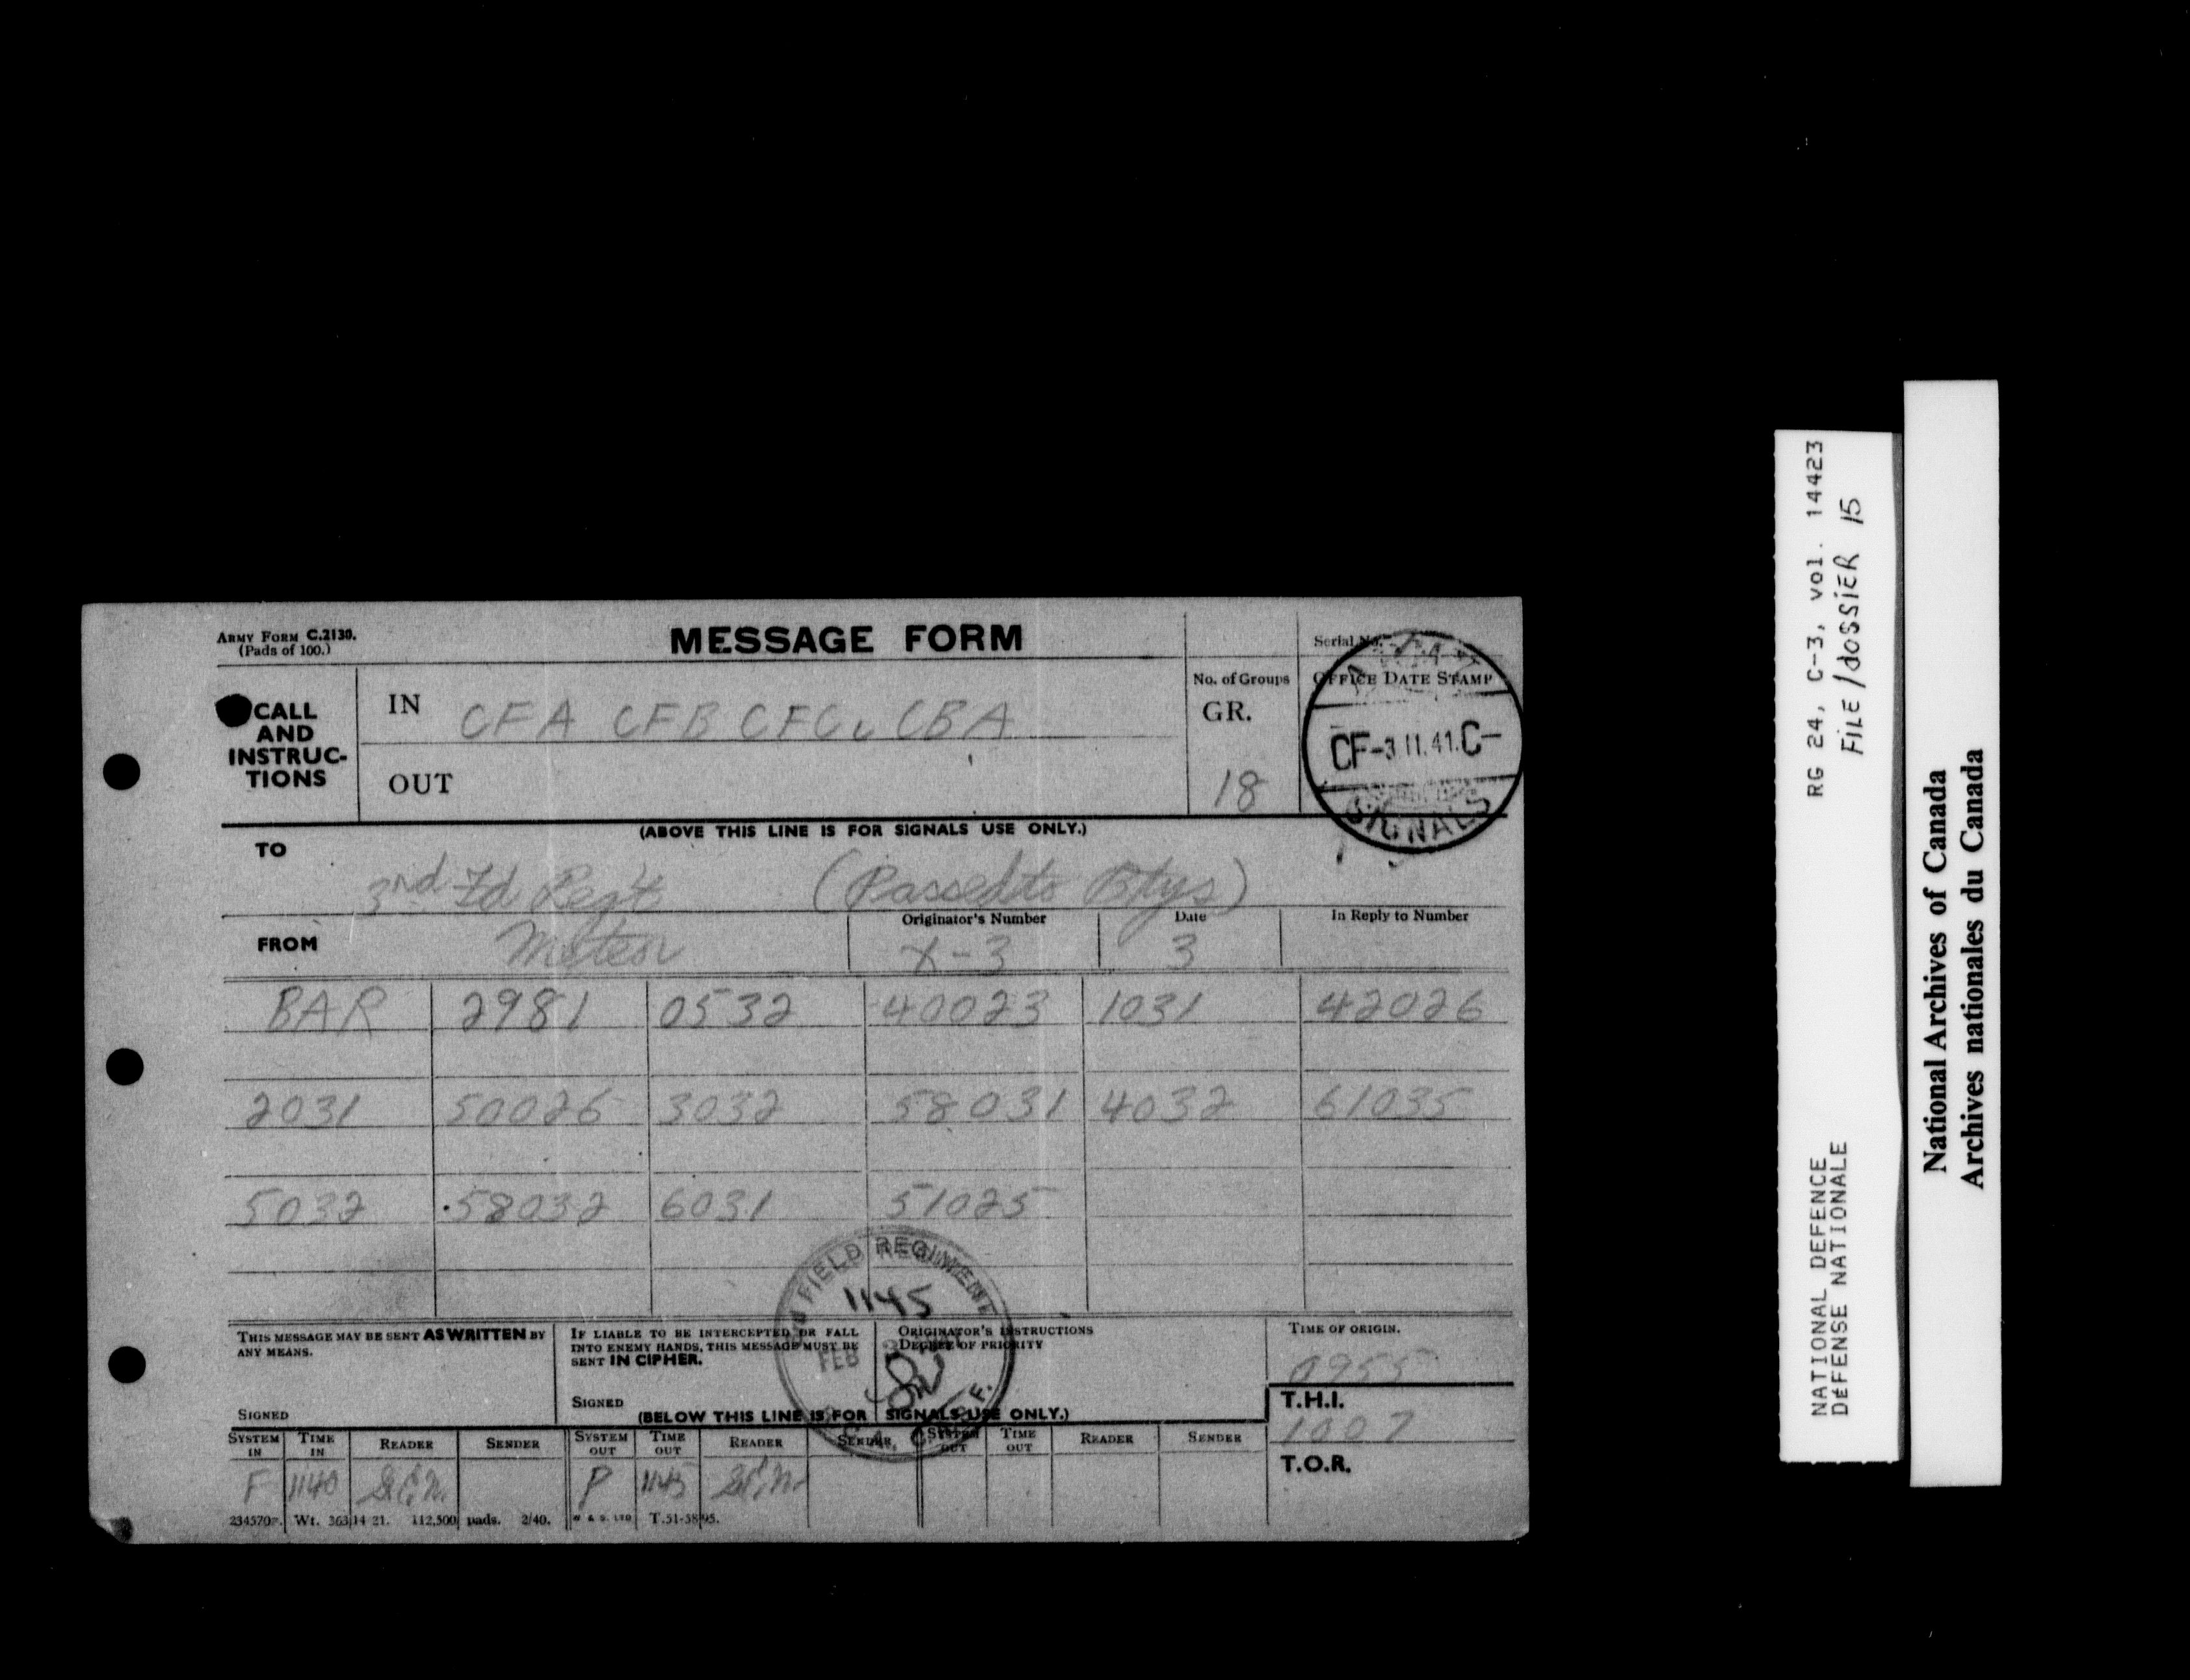 ARMY FORM C.2130.
(Pads of 100.)
MESSAGE FORM
Serial No.
CALL AND INSTRUC-TIONS
IN CFA CFB CFC CBA
OUT
No. of Groups
GR.
18
OFFICE DATE STAMP
CF-3 II.41.C-
SIGNALS
(ABOVE THIS LINE IS FOR SIGNALS USE ONLY.)
TO
3rd Fd Regt (Passed to Btys)
FROM Meteor
Originator's Number
X-3
Date
3
In Reply to Number
BAR 2981 0532 40023 1031 42026
2031 50026 3032 58031 4032 61035
5032 58032 6031 51025
FIELD REGIMENT
1145
FEB 3
THIS MESSAGE MAY BE SENT AS WRITTEN BY ANY MEANS.
SIGNED
IF LIABLE TO BE INTERCEPTED OR FALL INTO ENEMY HANDS, THIS MESSAGE MUST BE SENT IN CIPHER.
SIGNED
ORIGINATOR'S INSTRUCTIONS
DEGREE OF PRIORITY
TIME OF ORIGIN.
0955
T.H.I.
1007
T.O.R.
(BELOW THIS LINE IS FOR SIGNALS USE ONLY.)
SYSTEM IN TIME IN READER SENDER SYSTEM OUT TIME OUT READER SENDER SYSTEM OUT TIME OUT READER SENDER
F 1140 P 1145
Wt. 36314 21. 112,500 pads. 2/40. W & S. LTD
RG 24, C-3, vol. 14423
FILE/dOSSiER 15
NATIONAL DEFENCE
DÉFENSE NATIONALE
National Archives of Canada
Archives nationales du Canada